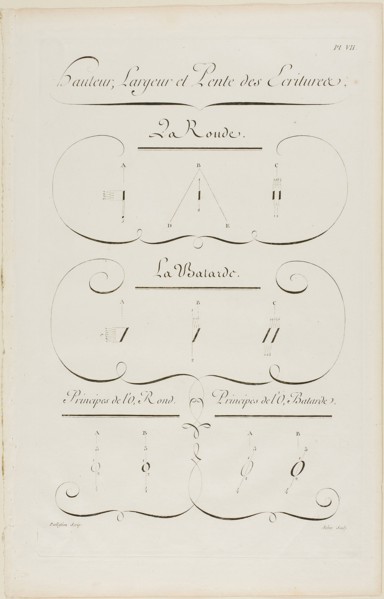 Pl. VII
Hauteur, Largeur et Pente des Ecritures.
La Ronde.
A B C
D E
La Batarde.
A B C
Principes de l'O, Rond. Principes de l'O, Batarde.
A B A B